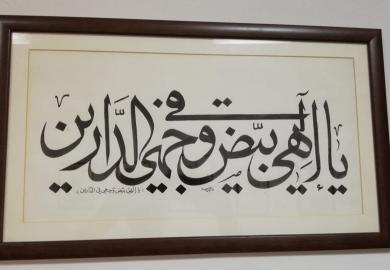 يا إلهي بيّض وجهي في الدَّارين
(يا إلهي بيض وجهي في الدارين)